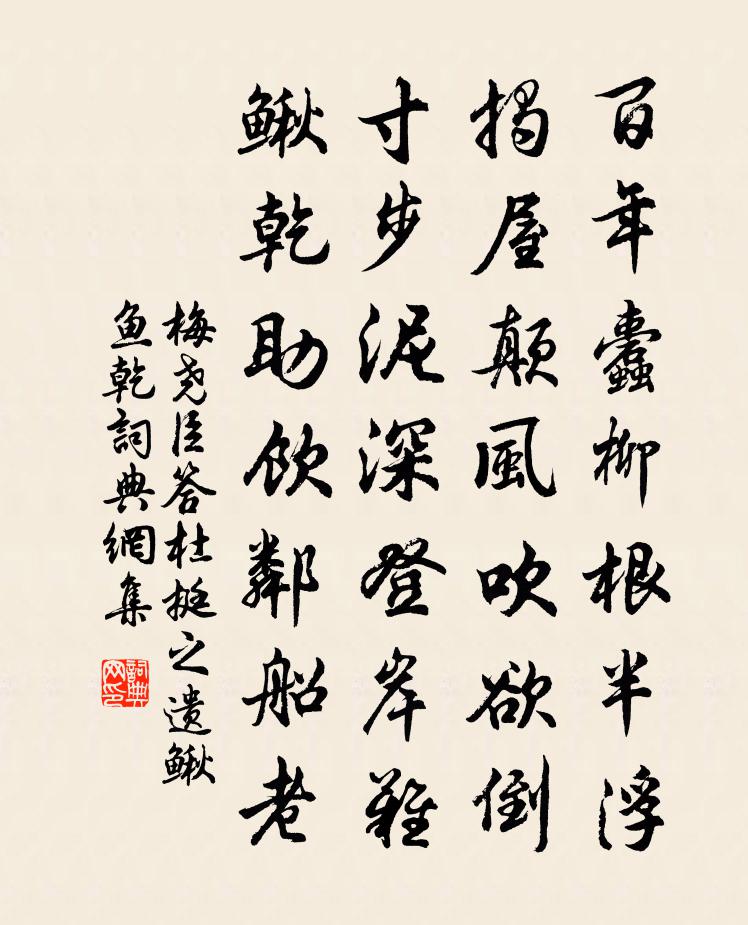 百年蠹柳根半浮
揭屋颠風吹欲倒
寸步泥深登岸難
鳅乾助飲鄰船老
梅尧臣答杜挺之遗鳅
鱼乾詞典網集
詞典网印